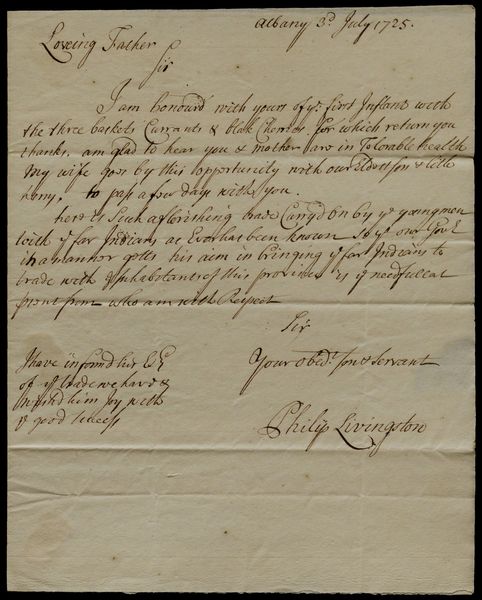 Albany 3d. July 1725.
Loveing Father
Sir
I am honourd with yours of ye. first Instant with
the three baskets Currants & blak Cherries for which return you
thanks, am glad to hear you & mother are in Tolorable health
My wife goes by this opportunity with our Eldest son & litle
to pass a few days with you.
here is Such a florishing trade Carryd on by ye young men
with ye far Indians as Ever has been known So yt our Gov
in a mannor gotts his aim in bringing ye far Indians to
trade with ye Inhabitants of this province is ye needfull at
from who am with Respect
Sir
Your obedt. son & Servant
Philip Livingston
I have informd his
of ye trade we have &
him joy with
ye good success